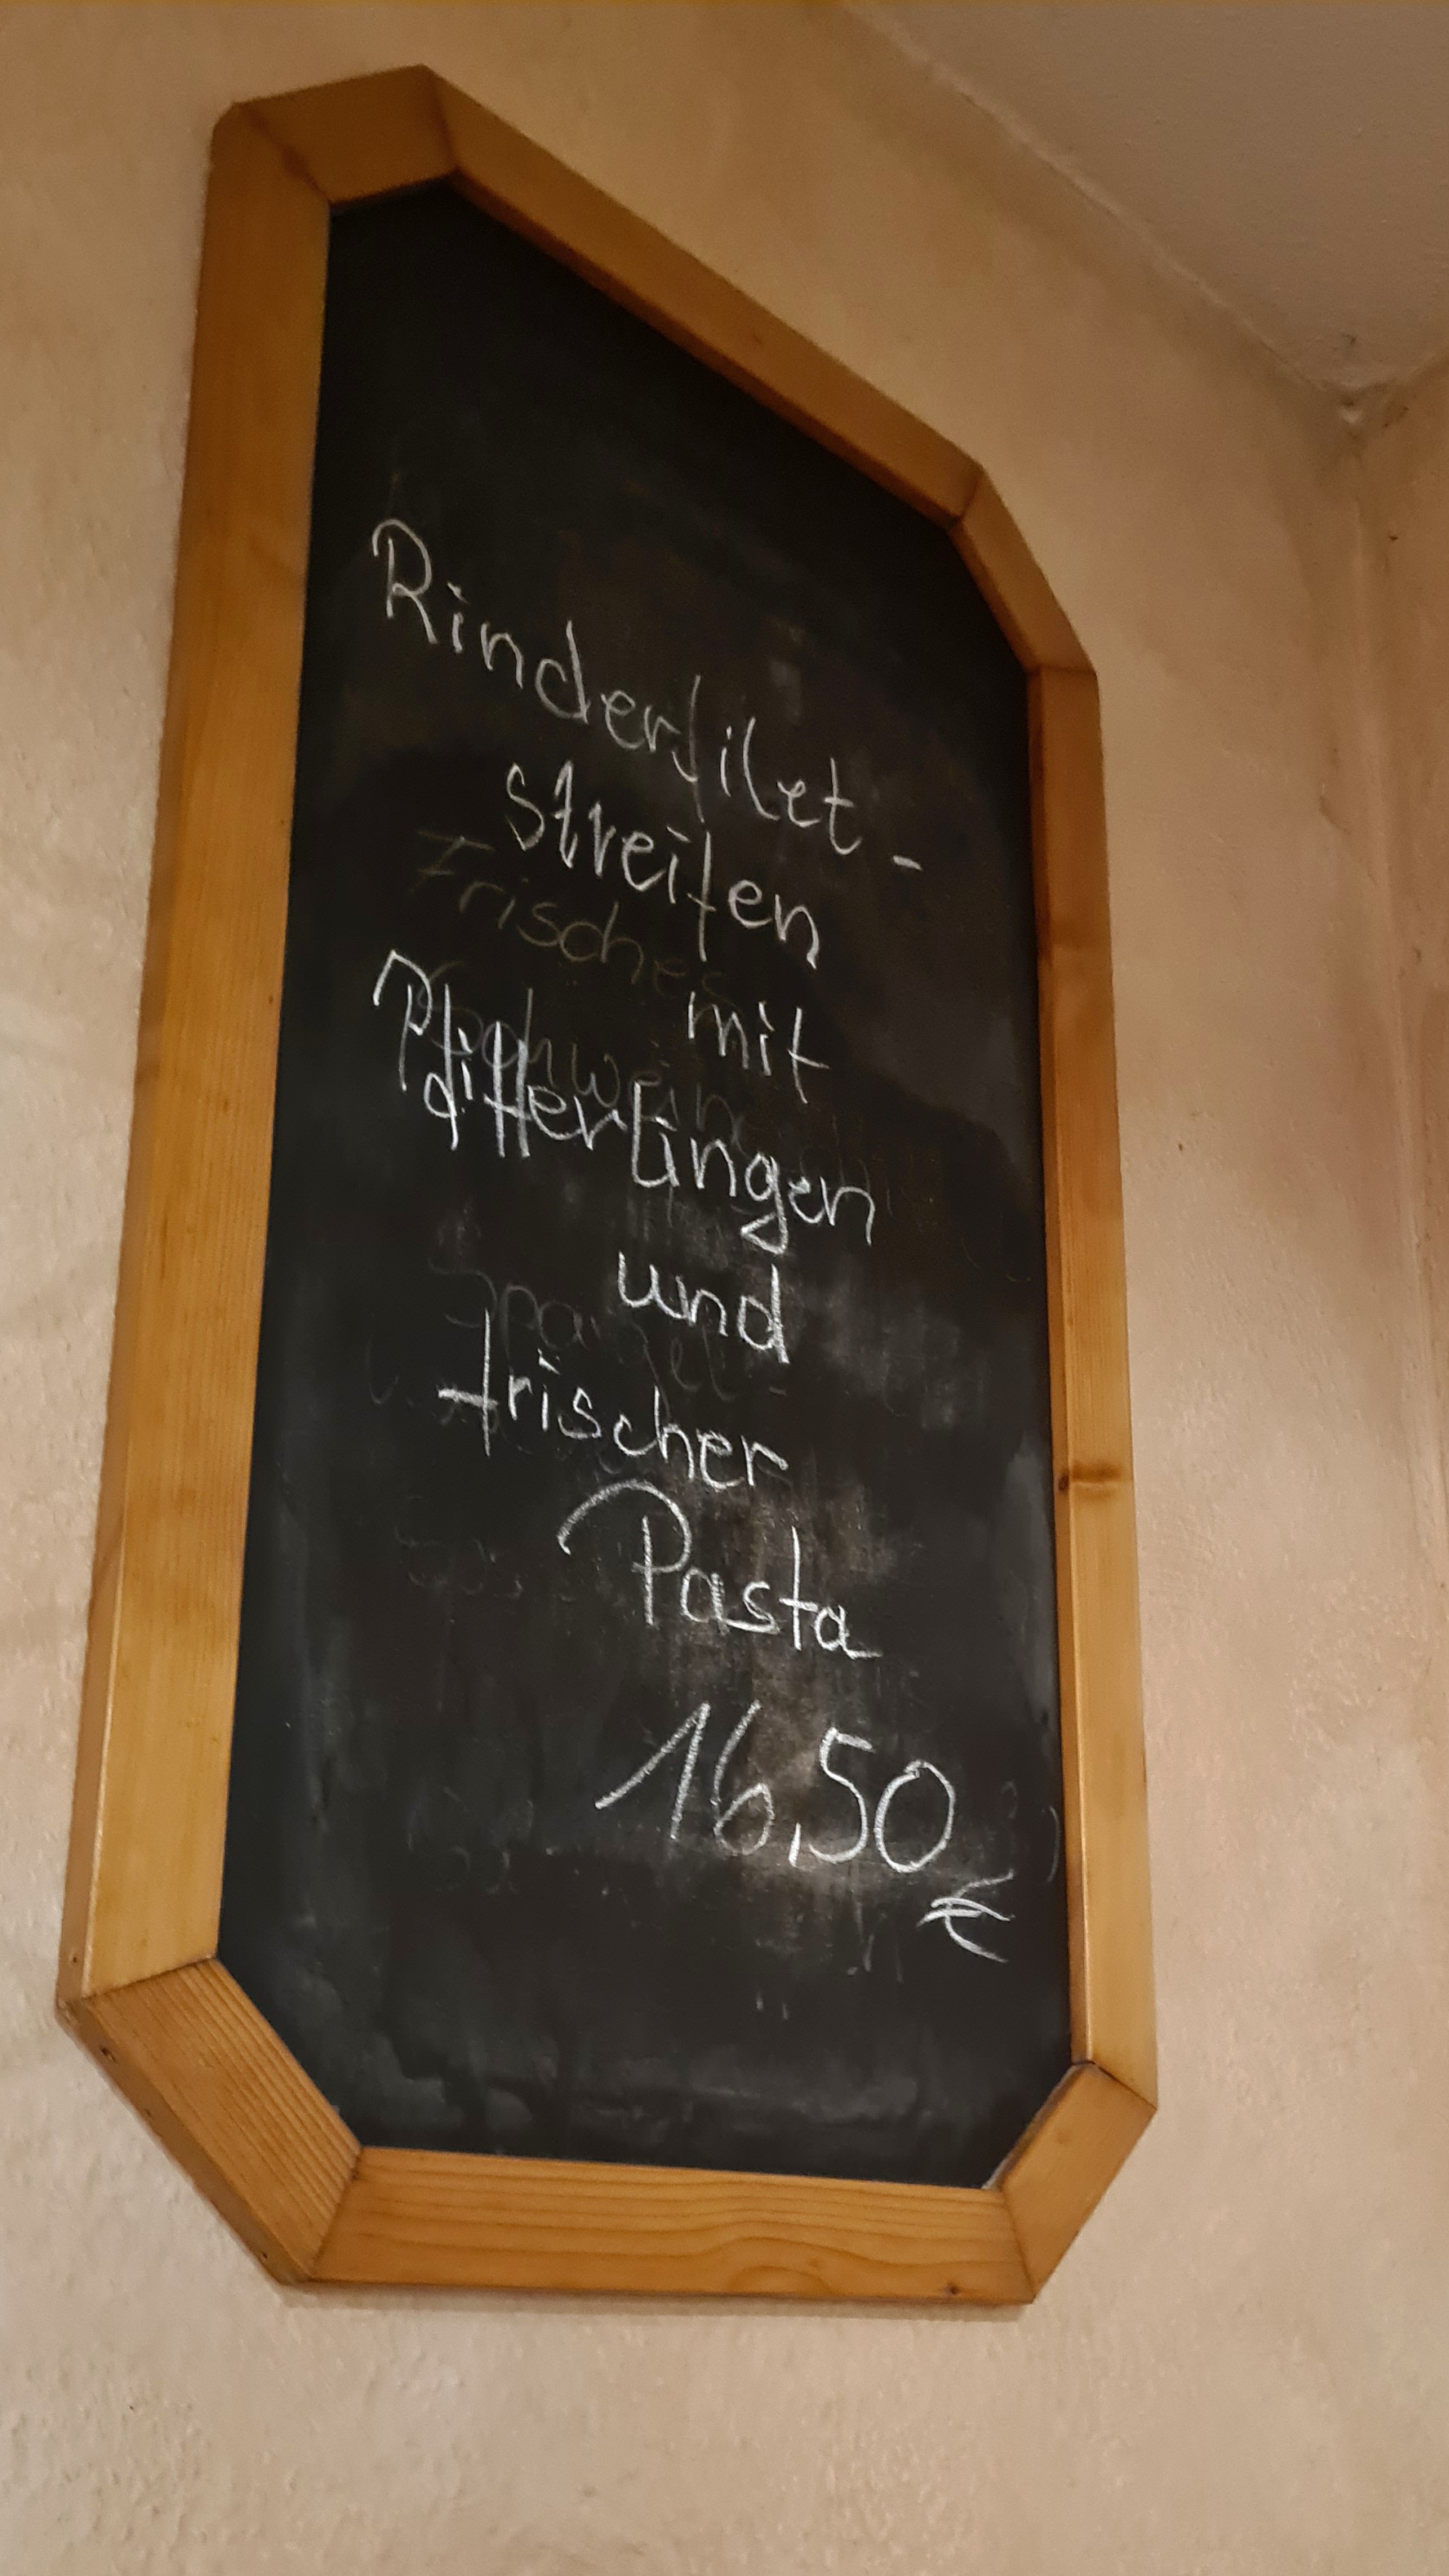 Rinderfilet-
streifen
mit
Pfifferlingen
und
frischer
Pasta
16,50
€